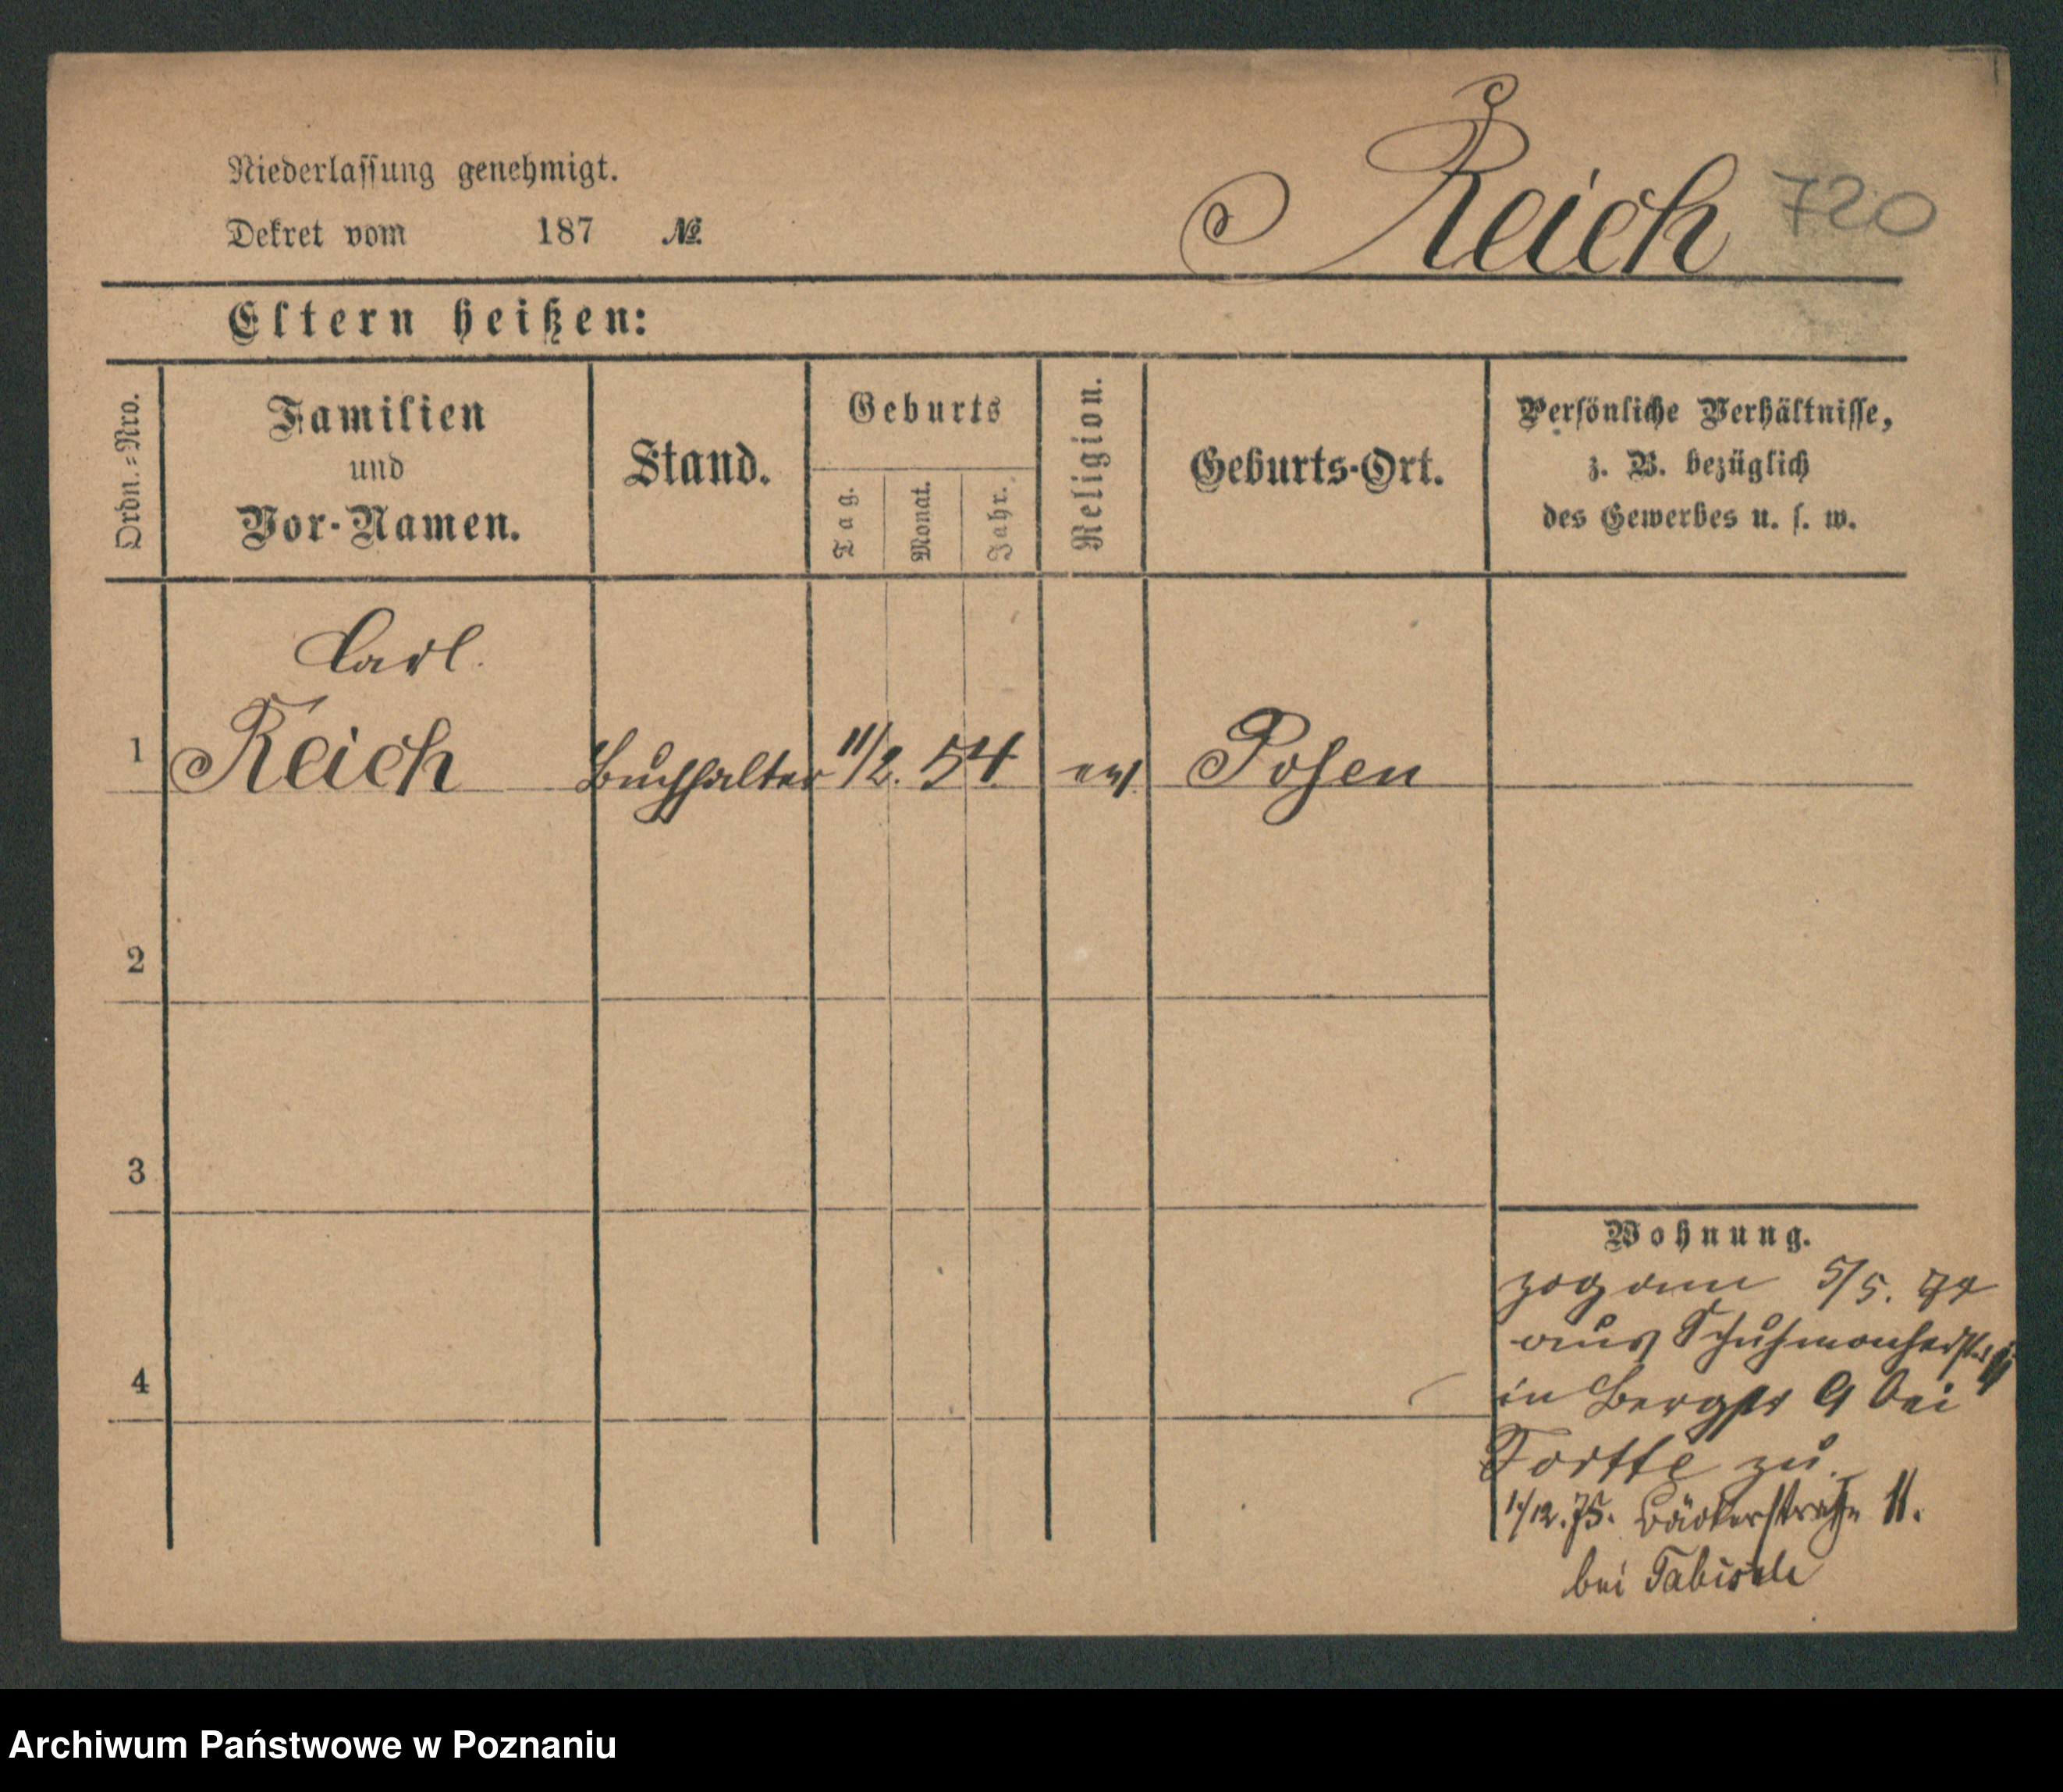 Reich 720
Niederlassung genehmigt.
Dekret vom 187 №
Eltern heißen:
Ordn.=Nro.
Familien
und
Vor-Namen.
Stand.
Geburts
Tag.
Monat.
Jahr.
Religion.
Geburts-Ort.
Persönliche Verhältnisse,
z. B. bezüglich
des Gewerbes u. s. w.
Carl.
1 Reich Buchhalter 11/2. 54. ev. Posen
2
3
4
Wohnung.
zog am 5/5. 74
aus
in Bergstr 9 bei
zu.
1/12. 75. Bäckerstraße 11.
bei
Archiwum Państwowe w Poznaniu